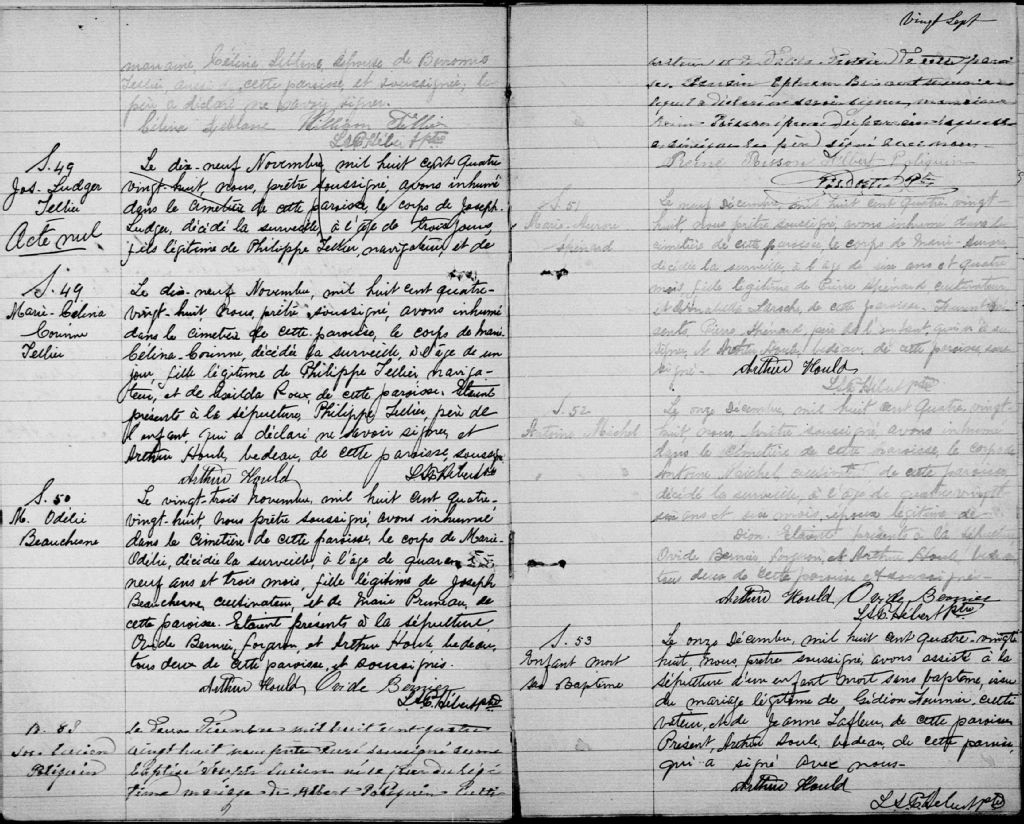 marraine, Célina Leblanc, épouse de
Tellier, aussi de cette paroisse, et soussignée; le
père a déclaré ne savoir signer.
Célina Leblanc William Tellier
Ls. C. Hébert Ptre
S. 49
Jos. Ludger
Tellier
Acte nul
Le dix-neuf Novembre, mil huit cent quatre
vingt-huit, nous, prêtre soussigné, avons inhumé
dans le cimetière de cette paroisse, le corps de Joseph-
Ludger, décédé la surveille, à l'âge de trois jours,
fils légitime de Philippe Tellier, navigateur, et de
S. 49
Marie-Célina
Corinne
Tellier
Le dix-neuf Novembre, mil huit cent quatre-
vingt-huit, nous, prêtre soussigné, avons inhumé
dans le cimetière de cette paroisse, le corps de Marie
Célina-Corinne, décédée la surveille, à l'âge de un
jour, fille légitime de Philippe Tellier, naviga-
teur, et de Exilda Roux, de cette paroisse. Etaient
présents à la sépulture, Philippe Tellier, père de
l'enfant, qui a déclaré ne savoir signer, et
Arthur Houle, bedeau, de cette paroisse, soussigné
Arthur Hould Ls. C. Hébert Ptre
S. 50
M. Odélie
Beauchesne
Le vingt-trois novembre, mil huit cent quatre-
vingt-huit, nous prêtre soussigné, avons inhumé
dans le cimetière de cette paroisse, le corps de Marie-
Odélie, décédée la surveille, à l'âge de quarante
neuf ans et trois mois, fille légitime de Joseph
Beauchesne, cultivateur, et de Marie Pruneau, de
cette paroisse. Etaient présents à la sépulture,
Ovide Bernier, forgeron, et Arthur Houle, bedeau,
tous deux de cette paroisse, et soussignés.
Arthur Hould Ovide Bernier
Ls. C. Hébert ptre
B. 88
Jos. Lucien
Poliquin
Le deux Décembre mil huit cent quatre
vingt huit nous prêtre curé soussigné avons
baptisé Joseph Lucien né ce jour du légi
time mariage de Albert Poliquin
Vingt Sept
et de de cette parois
se. Parrain Ephrem
lequel a déclaré ne savoir signer, marraine
Poisson
père signé avec nous
Poisson Albert Poliquin
Ptre
S. 51
Marie-Aurore
Spénard
Le neuf Décembre, mil huit cent quatre vingt-
huit, nous prêtre soussigné, avons inhumé dans le
cimetière de cette paroisse le corps de Marie-Aurore
décédée la surveille, à l'âge de six ans et quatre
mois, fille légitime de Pierre Spénard cultivateur
et de Laroche, de cette paroisse. Etaient pré
sents Pierre Spénard, père de l'enfant, qui n'a su
signer, et Arthur Houle, bedeau, de cette paroisse sous
signé. Arthur Hould
Ls. C. Hébert ptre
S. 52
Antoine Michel
Le onze Décembre, mil huit cent quatre, vingt-
huit, nous, prêtre soussigné, avons inhumé
dans le cimetière de cette paroisse, le corps de
Antoine Michel de cette paroisse
décédé la surveille, à l'âge de quatre vingt-
six ans et six mois, époux légitime de
Dion. Etaient présents à la sépulture
Ovide Bernier, forgeron, et Arthur Houle, bedeau
tous deux de cette paroisse et soussignés-
Arthur Hould Ovide Bernier
Ls. C. Hébert ptre
S. 53
Enfant mort
sans Baptême
Le onze Décembre, mil huit cent quatre-vingt
huit, nous, prêtre soussigné, avons assisté à la
sépulture d'un enfant mort sans baptême, issu
du mariage légitime de Gédéon Fournier, culti
vateur, et de Jeanne Lafleur, de cette paroisse.
Présent, Arthur Houle, bedeau, de cette paroisse,
qui a signé avec nous-
Arthur Hould
L. S. C. Hébert ptre